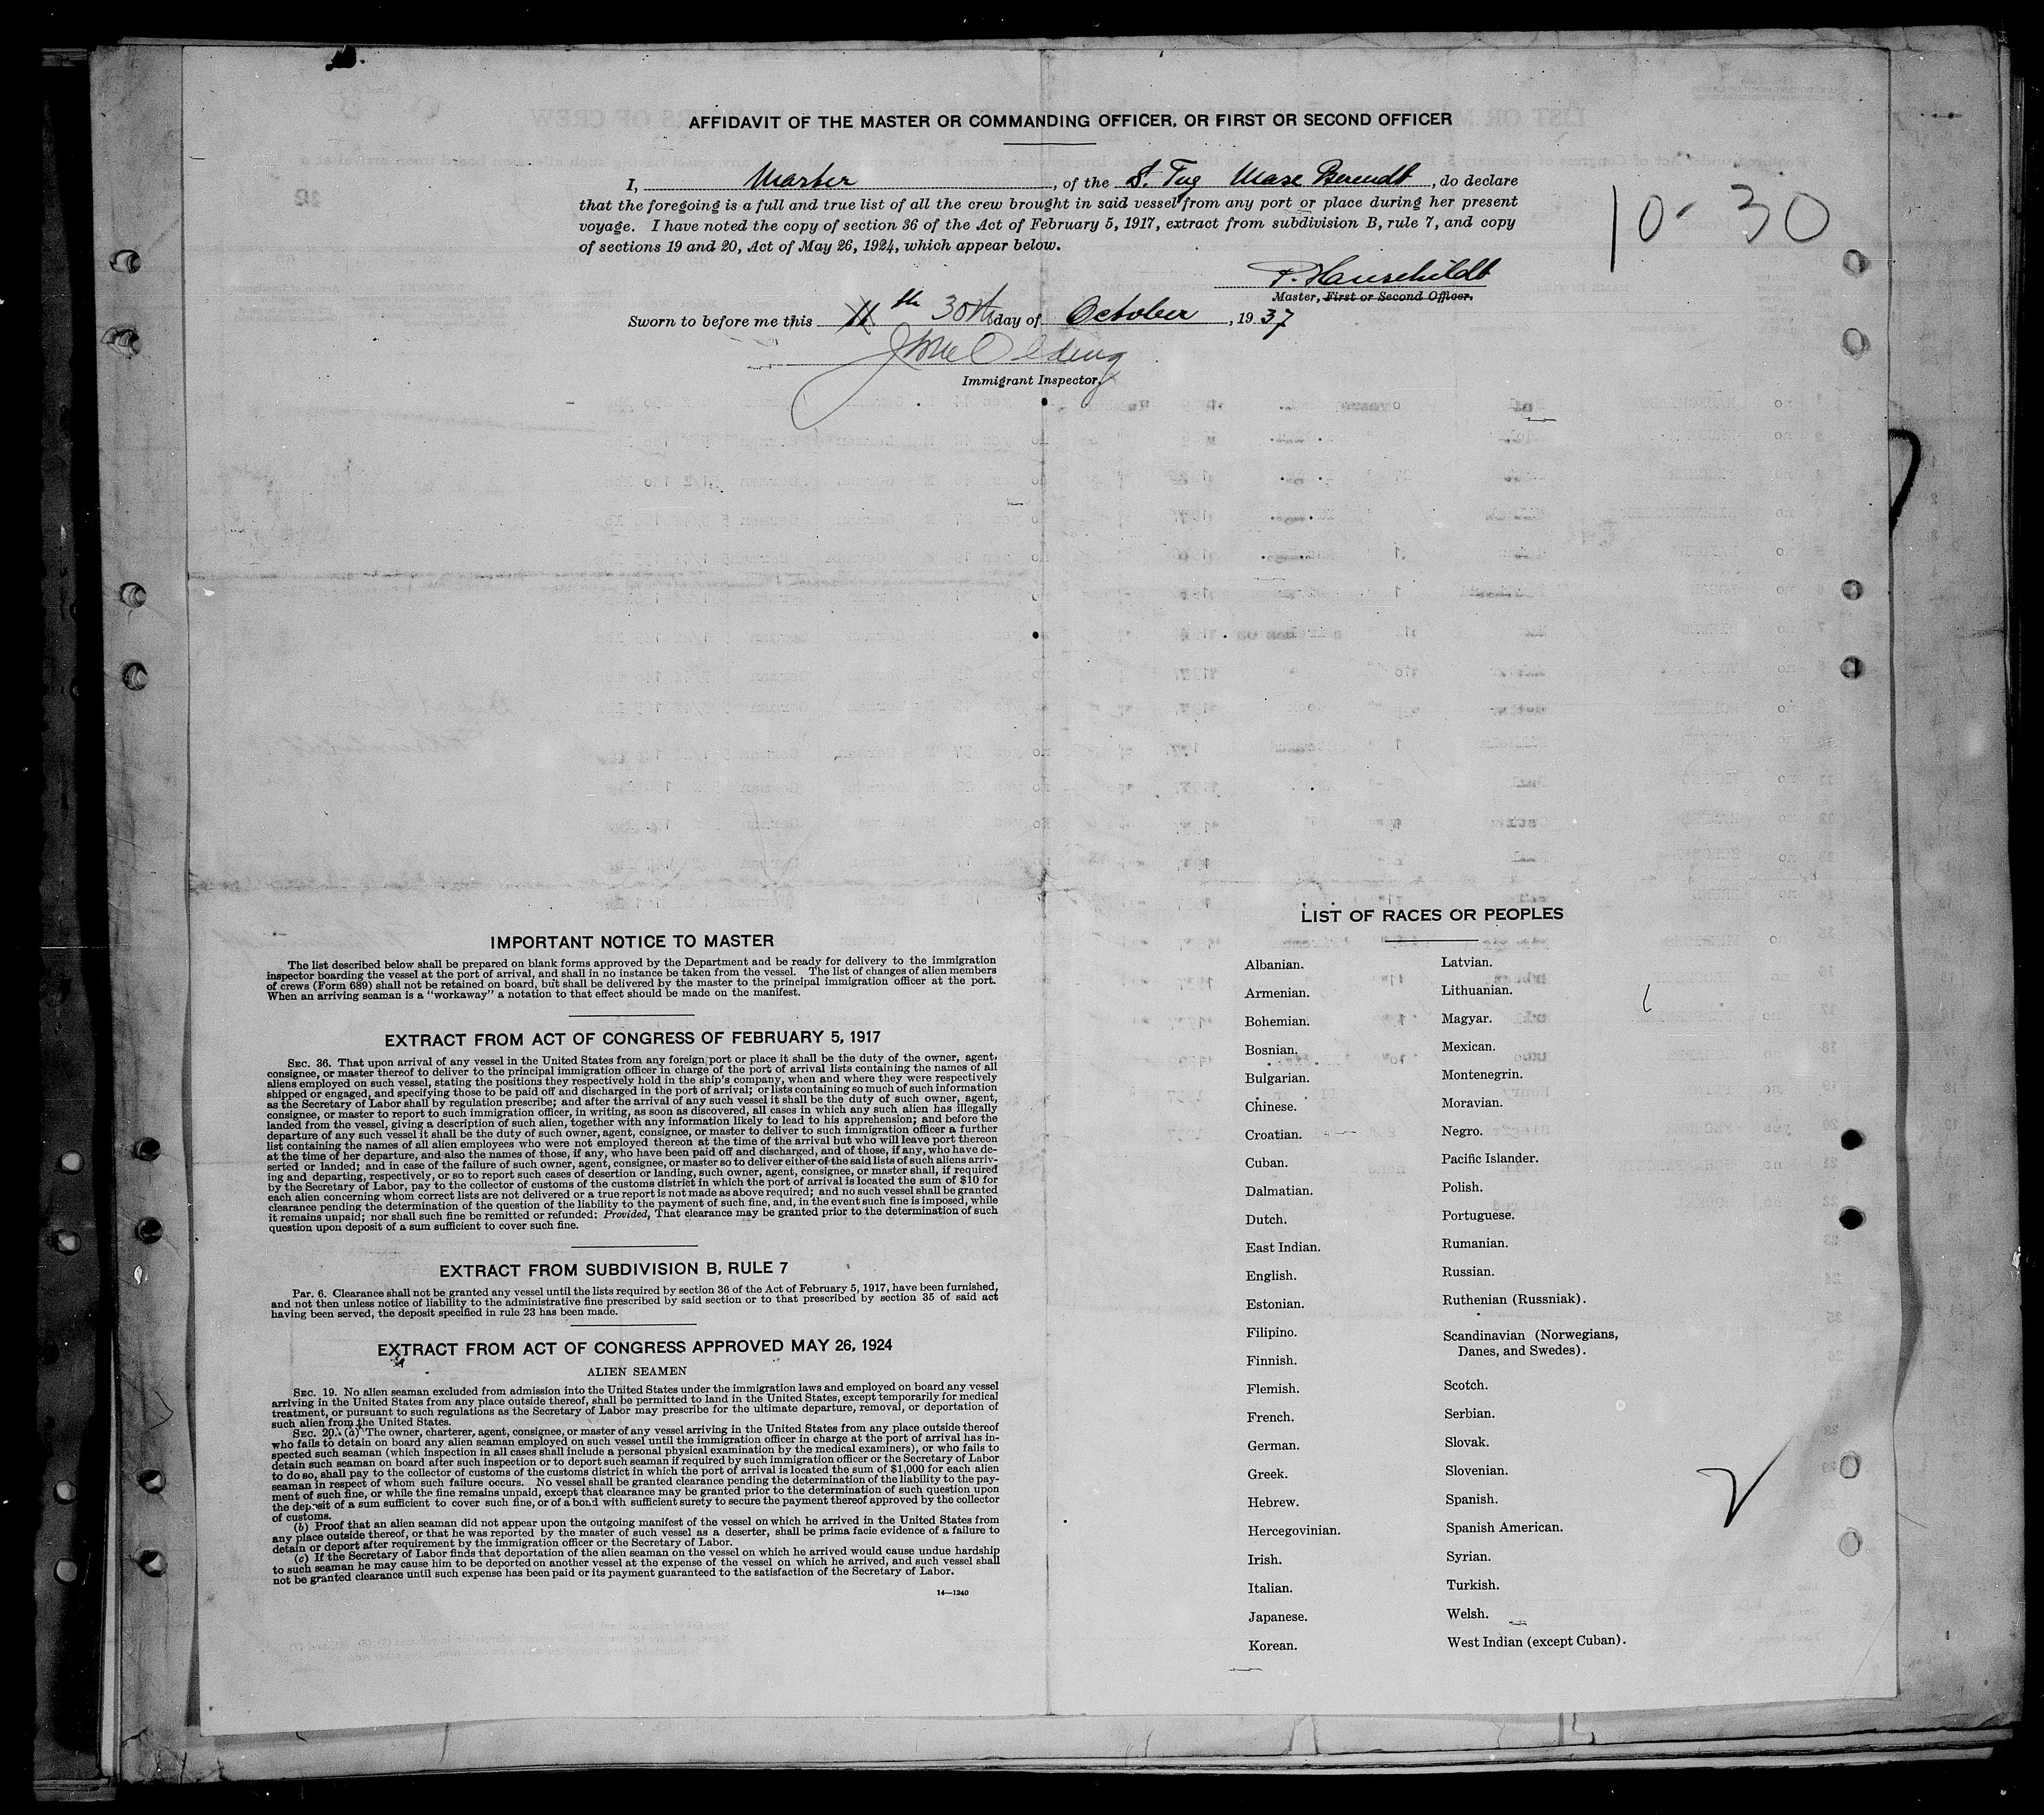 AFFIDAVIT OF THE MASTER OR COMMANDING OFFICER, OR FIRST OR SECOND OFFICER
I, Master, of the S. Tug Max Berendt, do declare
that the foregoing is a full and true list of all the crew brought in said vessel from any port or place during her present
voyage. I have noted the copy of section 36 of the Act of February 5, 1917, extract from subdivision B, rule 7, and copy
of sections 19 and 20, Act of May 26, 1924, which appear below.
10-30
P. Hauschildt
Master, First or Second Officer.
Sworn to before me this 11th 30th day of October, 1937
Immigrant Inspector.
IMPORTANT NOTICE TO MASTER
The list described below shall be prepared on blank forms approved by the Department and be ready for delivery to the immigration
inspector boarding the vessel at the port of arrival, and shall in no instance be taken from the vessel. The list of changes of alien members
of crews (Form 689) shall not be retained on board, but shall be delivered by the master to the principal immigration officer at the port.
When an arriving seaman is a "workaway" a notation to that effect should be made on the manifest.
EXTRACT FROM ACT OF CONGRESS OF FEBRUARY 5, 1917
SEC. 36. That upon arrival of any vessel in the United States from any foreign port or place it shall be the duty of the owner, agent,
consignee, or master thereof to deliver to the principal immigration officer in charge of the port of arrival lists containing the names of all
aliens employed on such vessel, stating the positions they respectively hold in the ship's company, when and where they were respectively
shipped or engaged, and specifying those to be paid off and discharged in the port of arrival; or lists containing so much of such information
as the Secretary of Labor shall by regulation prescribe; and after the arrival of any such vessel it shall be the duty of such owner, agent,
consignee, or master to report to such immigration officer, in writing, as soon as discovered, all cases in which any such alien has illegally
landed from the vessel, giving a description of such alien, together with any information likely to lead to his apprehension; and before the
departure of any such vessel it shall be the duty of such owner, agent, consignee, or master to deliver to such immigration officer a further
list containing the names of all alien employees who were not employed thereon at the time of the arrival but who will leave port thereon
at the time of her departure, and also the names of those, if any, who have been paid off and discharged, and of those, if any, who have de-
serted or landed; and in case of the failure of such owner, agent, consignee, or master so to deliver either of the said lists of such aliens arriv-
ing and departing, respectively, or so to report such cases of desertion or landing, such owner, agent, consignee, or master shall, if required
by the Secretary of Labor, pay to the collector of customs of the customs district in which the port of arrival is located the sum of $10 for
each alien concerning whom correct lists are not delivered or a true report is not made as above required; and no such vessel shall be granted
clearance pending the determination of the question of the liability to the payment of such fine, and, in the event such fine is imposed, while
it remains unpaid; nor shall such fine be remitted or refunded: Provided, That clearance may be granted prior to the determination of such
question upon deposit of a sum sufficient to cover such fine.
EXTRACT FROM SUBDIVISION B, RULE 7
Par. 6. Clearance shall not be granted any vessel until the lists required by section 36 of the Act of February 5, 1917, have been furnished,
and not then unless notice of liability to the administrative fine prescribed by said section or to that prescribed by section 35 of said act
having been served, the deposit specified in rule 23 has been made.
EXTRACT FROM ACT OF CONGRESS APPROVED MAY 26, 1924
ALIEN SEAMEN
SEC. 19. No alien seaman excluded from admission into the United States under the immigration laws and employed on board any vessel
arriving in the United States from any place outside thereof, shall be permitted to land in the United States, except temporarily for medical
treatment, or pursuant to such regulations as the Secretary of Labor may prescribe for the ultimate departure, removal, or deportation of
such alien from the United States.
SEC. 20. (a) The owner, charterer, agent, consignee, or master of any vessel arriving in the United States from any place outside thereof
who fails to detain on board any alien seaman employed on such vessel until the immigration officer in charge at the port of arrival has in-
spected such seaman (which inspection in all cases shall include a personal physical examination by the medical examiners), or who fails to
detain such seaman on board after such inspection or to deport such seaman if required by such immigration officer or the Secretary of Labor
to do so, shall pay to the collector of customs of the customs district in which the port of arrival is located the sum of $1,000 for each alien
seaman in respect of whom such failure occurs. No vessel shall be granted clearance pending the determination of the liability to the pay-
ment of such fine, or while the fine remains unpaid, except that clearance may be granted prior to the determination of such question upon
the deposit of a sum sufficient to cover such fine, or of a bond with sufficient surety to secure the payment thereof approved by the collector
of customs.
(b) Proof that an alien seaman did not appear upon the outgoing manifest of the vessel on which he arrived in the United States from
any place outside thereof, or that he was reported by the master of such vessel as a deserter, shall be prima facie evidence of a failure to
detain or deport after requirement by the immigration officer or the Secretary of Labor.
(c) If the Secretary of Labor finds that deportation of the alien seaman on the vessel on which he arrived would cause undue hardship
to such seaman he may cause him to be deported on another vessel at the expense of the vessel on which he arrived, and such vessel shall
not be granted clearance until such expense has been paid or its payment guaranteed to the satisfaction of the Secretary of Labor.
14—1240
LIST OF RACES OR PEOPLES
Albanian.
Armenian.
Bohemian.
Bosnian.
Bulgarian.
Chinese.
Croatian.
Cuban.
Dalmatian.
Dutch.
East Indian.
English.
Estonian.
Filipino.
Finnish.
Flemish.
French.
German.
Greek.
Hebrew.
Hercegovinian.
Irish.
Italian.
Japanese.
Korean.
Latvian.
Lithuanian.
Magyar.
Mexican.
Montenegrin.
Moravian.
Negro.
Pacific Islander.
Polish.
Portuguese.
Rumanian.
Russian.
Ruthenian (Russniak).
Scandinavian (Norwegians,
Danes, and Swedes).
Scotch.
Serbian.
Slovak.
Slovenian.
Spanish.
Spanish American.
Syrian.
Turkish.
Welsh.
West Indian (except Cuban).